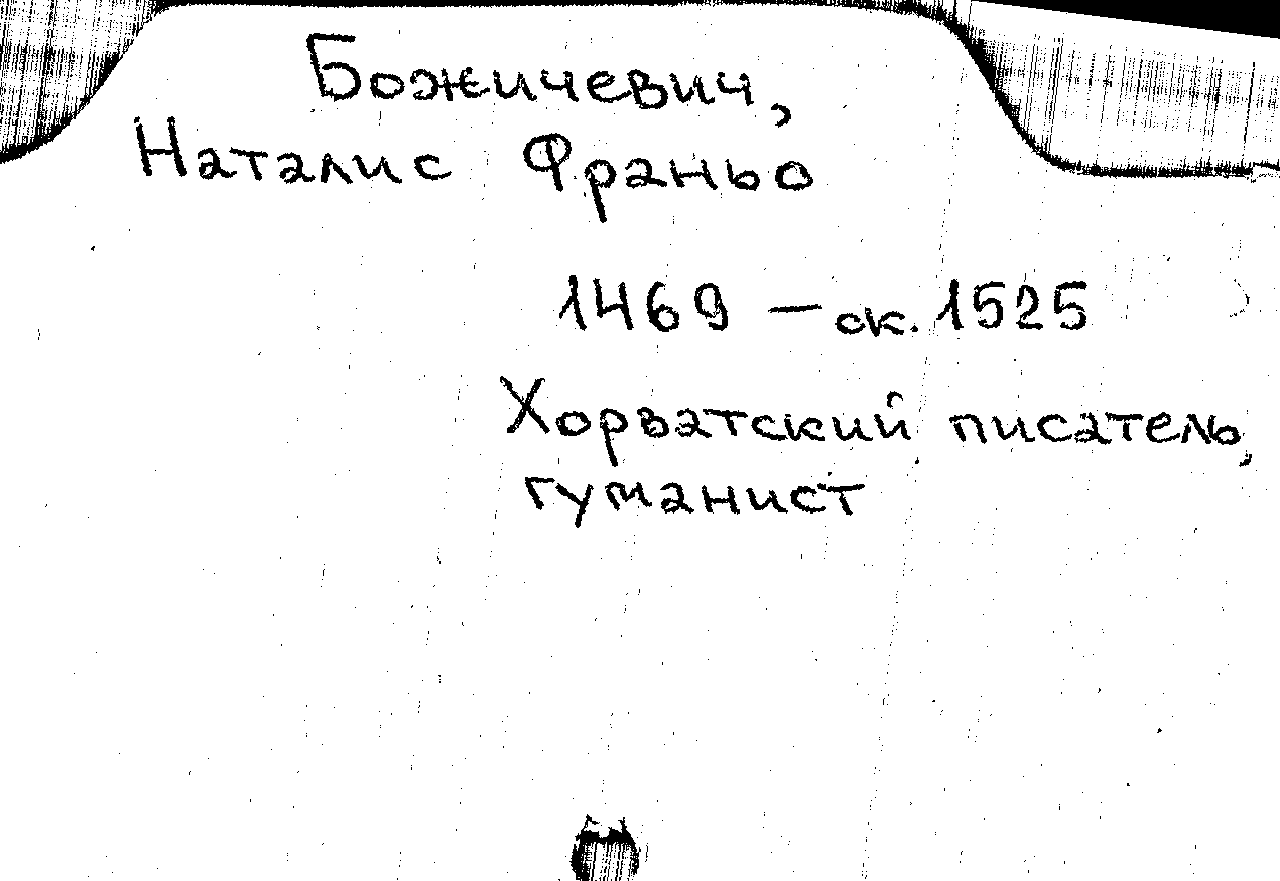 Божичевич,
Наталис Франьо
1469 – ок. 1525
Хорватский писатель,
гуманист